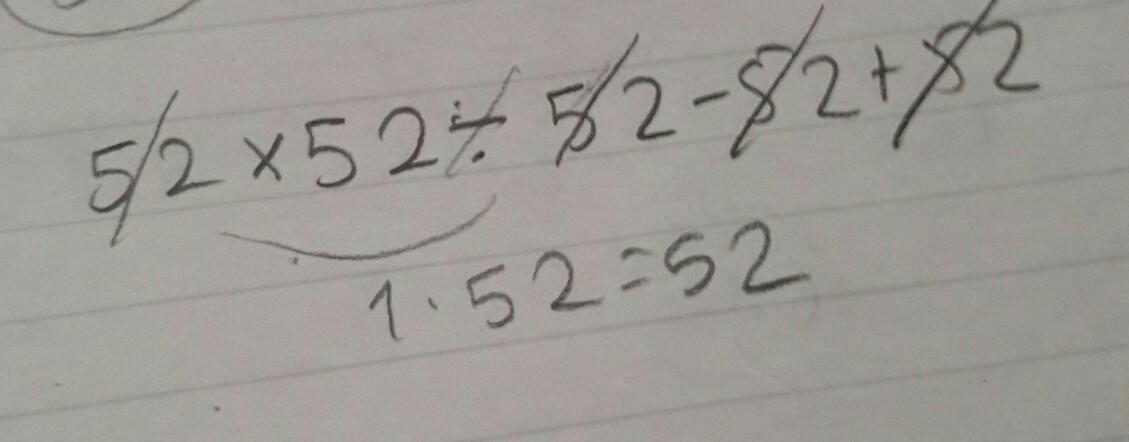 52 × 52 ÷ 52 - 52 + 52
1 · 52 = 52